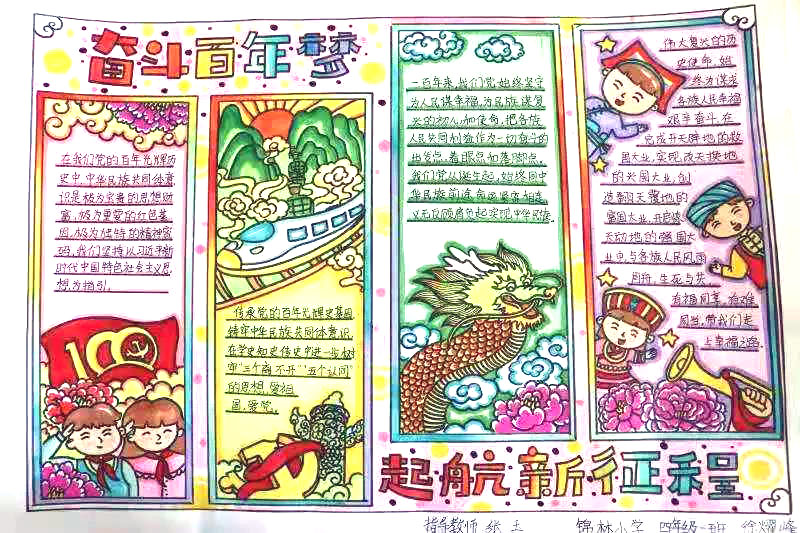 奋斗百年梦
在我们党的百年光辉历
史中,中华民族共同体意
识是极为宝贵的思想财
富,极为重要的红色基
因,极为独特的精神密
码,我们坚持以习近平新
时代中国特色社会主义思
想为指引。
100
传承党的百年光辉史基因
铸牢中华民族共同体意识
在学史知史传史中进一步树
牢"三个离不开""五个认同"
的思想,爱祖
国,爱党。
一百年来,我们党始终坚守
为人民谋幸福,为民族谋复
兴的初心和使命,把各族
人民共同利益作为一切奋斗的
出发点,着眼点和落脚点,
我们党从诞生起,始终同中
华民族前途命运紧密相连
义无反顾肩负起实现中华民族
伟大复兴的历
史使命,始
终为谋求
各族人民幸福
艰辛奋斗,在
完成开天辟地的救
国大业,实现改天换地
的兴国大业,创
造翻天覆地的
富国大业,开启惊
天动地的强国大
业中,与各族人民风雨
同舟,生死与共,
有福同享,有难
同当,带我们走
上幸福之路。
起航新征程
指导教师 张玉
锦林小学 四年级一班 徐耀峰